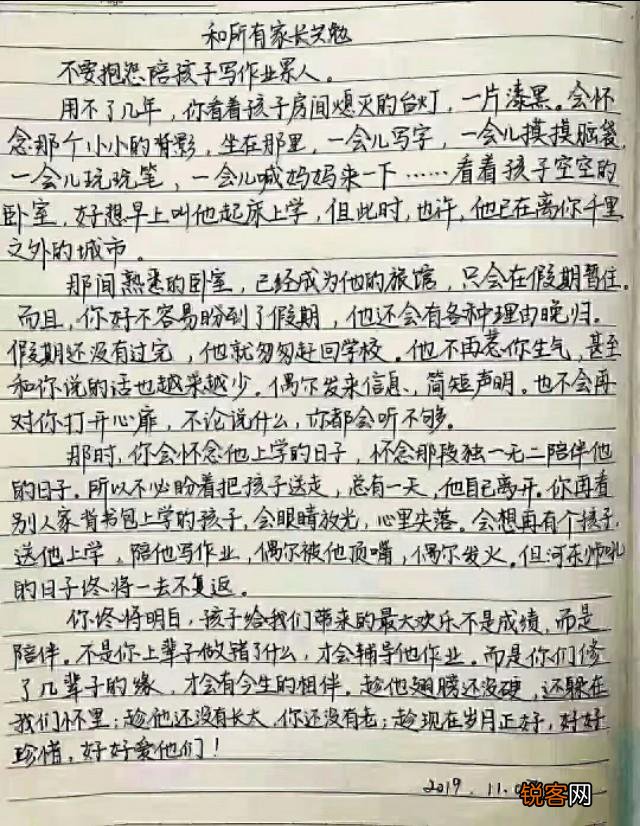 和所有家长共勉
不要抱怨陪孩子写作业累人。
用不了几年，你看着孩子房间熄灭的台灯，一片漆黑。会怀
念那个小小的背影，坐在那里，一会儿写字，一会儿摸摸脑袋，
一会儿玩玩笔，一会儿喊妈妈来一下……看着孩子空空的
卧室，好想早上叫他起床上学，但此时，也许，他已在离你千里
之外的城市。
那间熟悉的卧室，已经成为他的旅馆，只会在假期暂住。
而且，你好不容易盼到了假期，他还会有各种理由晚归。
假期还没有过完，他就匆匆赶回学校。他不再惹你生气，甚至
和你说的话也越来越少。偶尔发来信息，简短声明。也不会再
对你打开心扉，不论说什么，你都会听不够。
那时，你会怀念他上学的日子，怀念那段独一无二陪伴他
的日子。所以不必盼着把孩子送走，总有一天，他自己离开。你再看
别人家背书包上学的孩子，会眼睛放光，心里失落。会想再有个孩子，
送他上学，陪他写作业，偶尔被他顶嘴，偶尔发火。但河东狮吼
的日子终将一去不复返。
你终将明白，孩子给我们带来的最大欢乐不是成绩，而是
陪伴。不是你上辈子做错了什么，才会辅导他作业。而是你们修
了几辈子的缘，才会有今生的相伴。趁他翅膀还没硬，还躲在
我们怀里；趁他还没有长大，你还没有老；趁现在岁月正好，好好
珍惜，好好爱他们！
2019.11.
锐客网